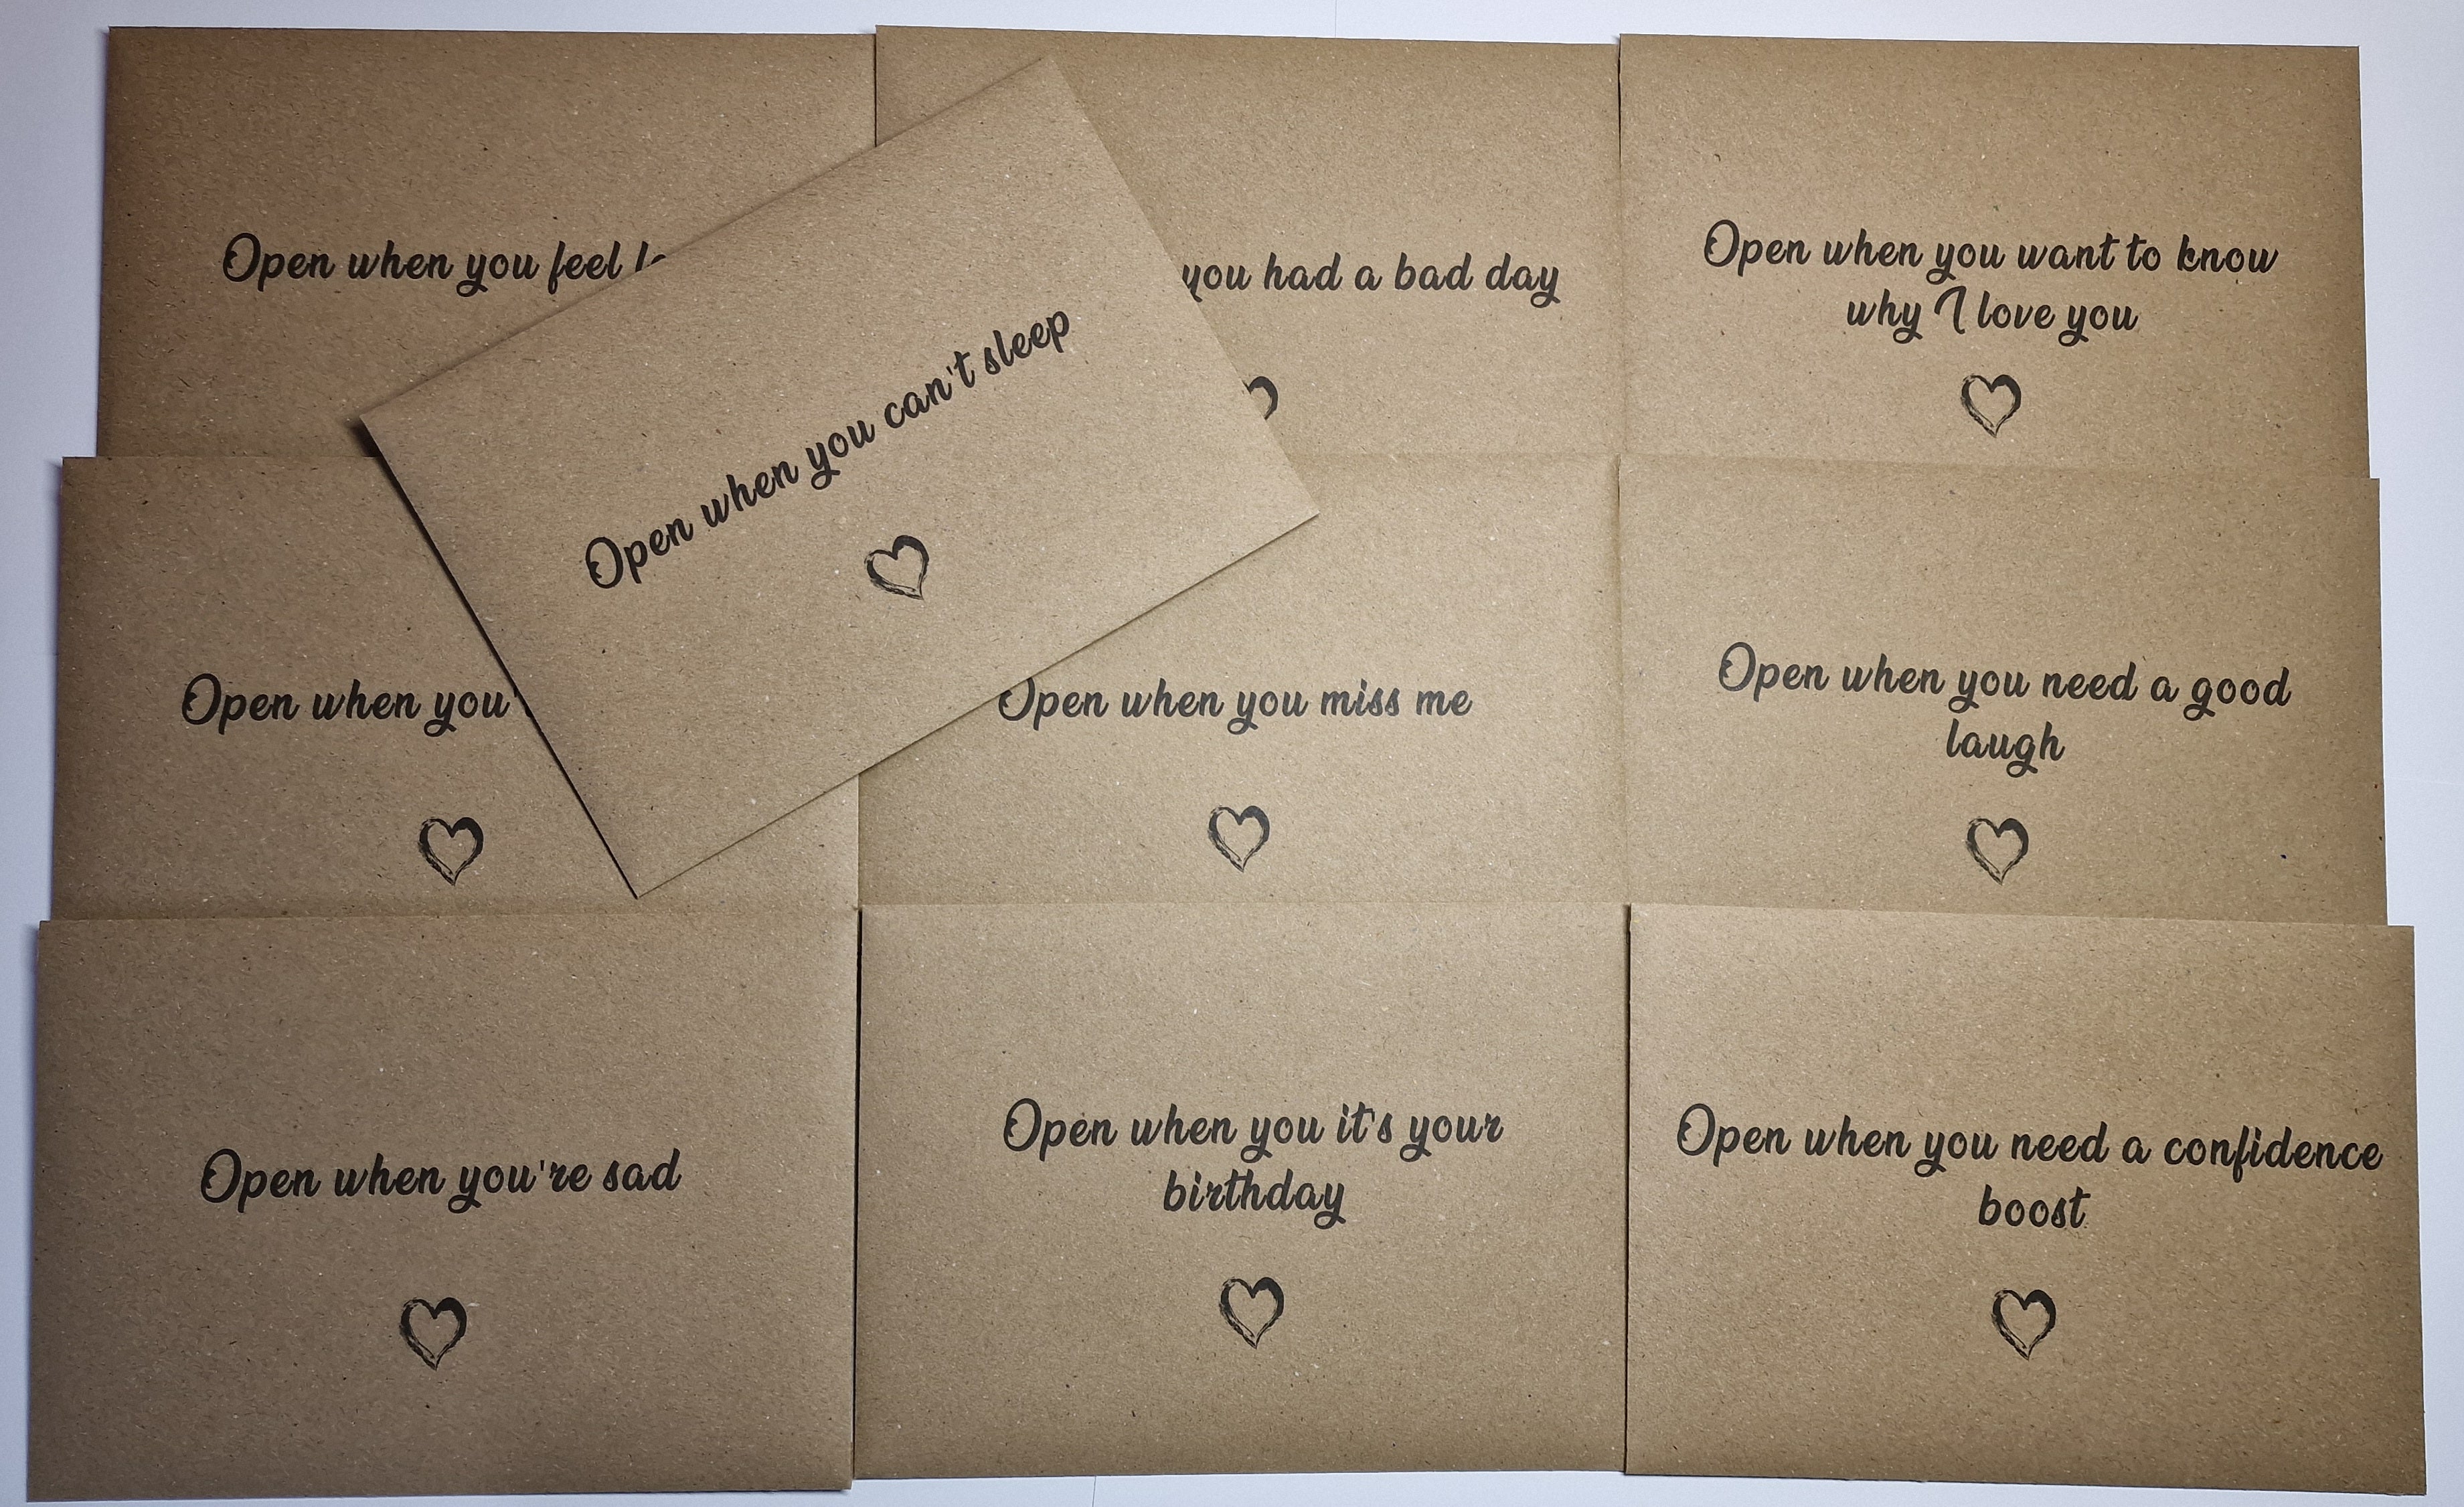 Open when you feel
you had a bad day
Open when you want to know
why I love you
Open when you can't sleep
Open when you
Open when you miss me
Open when you need a good
laugh
Open when you're sad
Open when you it's your
birthday
Open when you need a confidence
boost